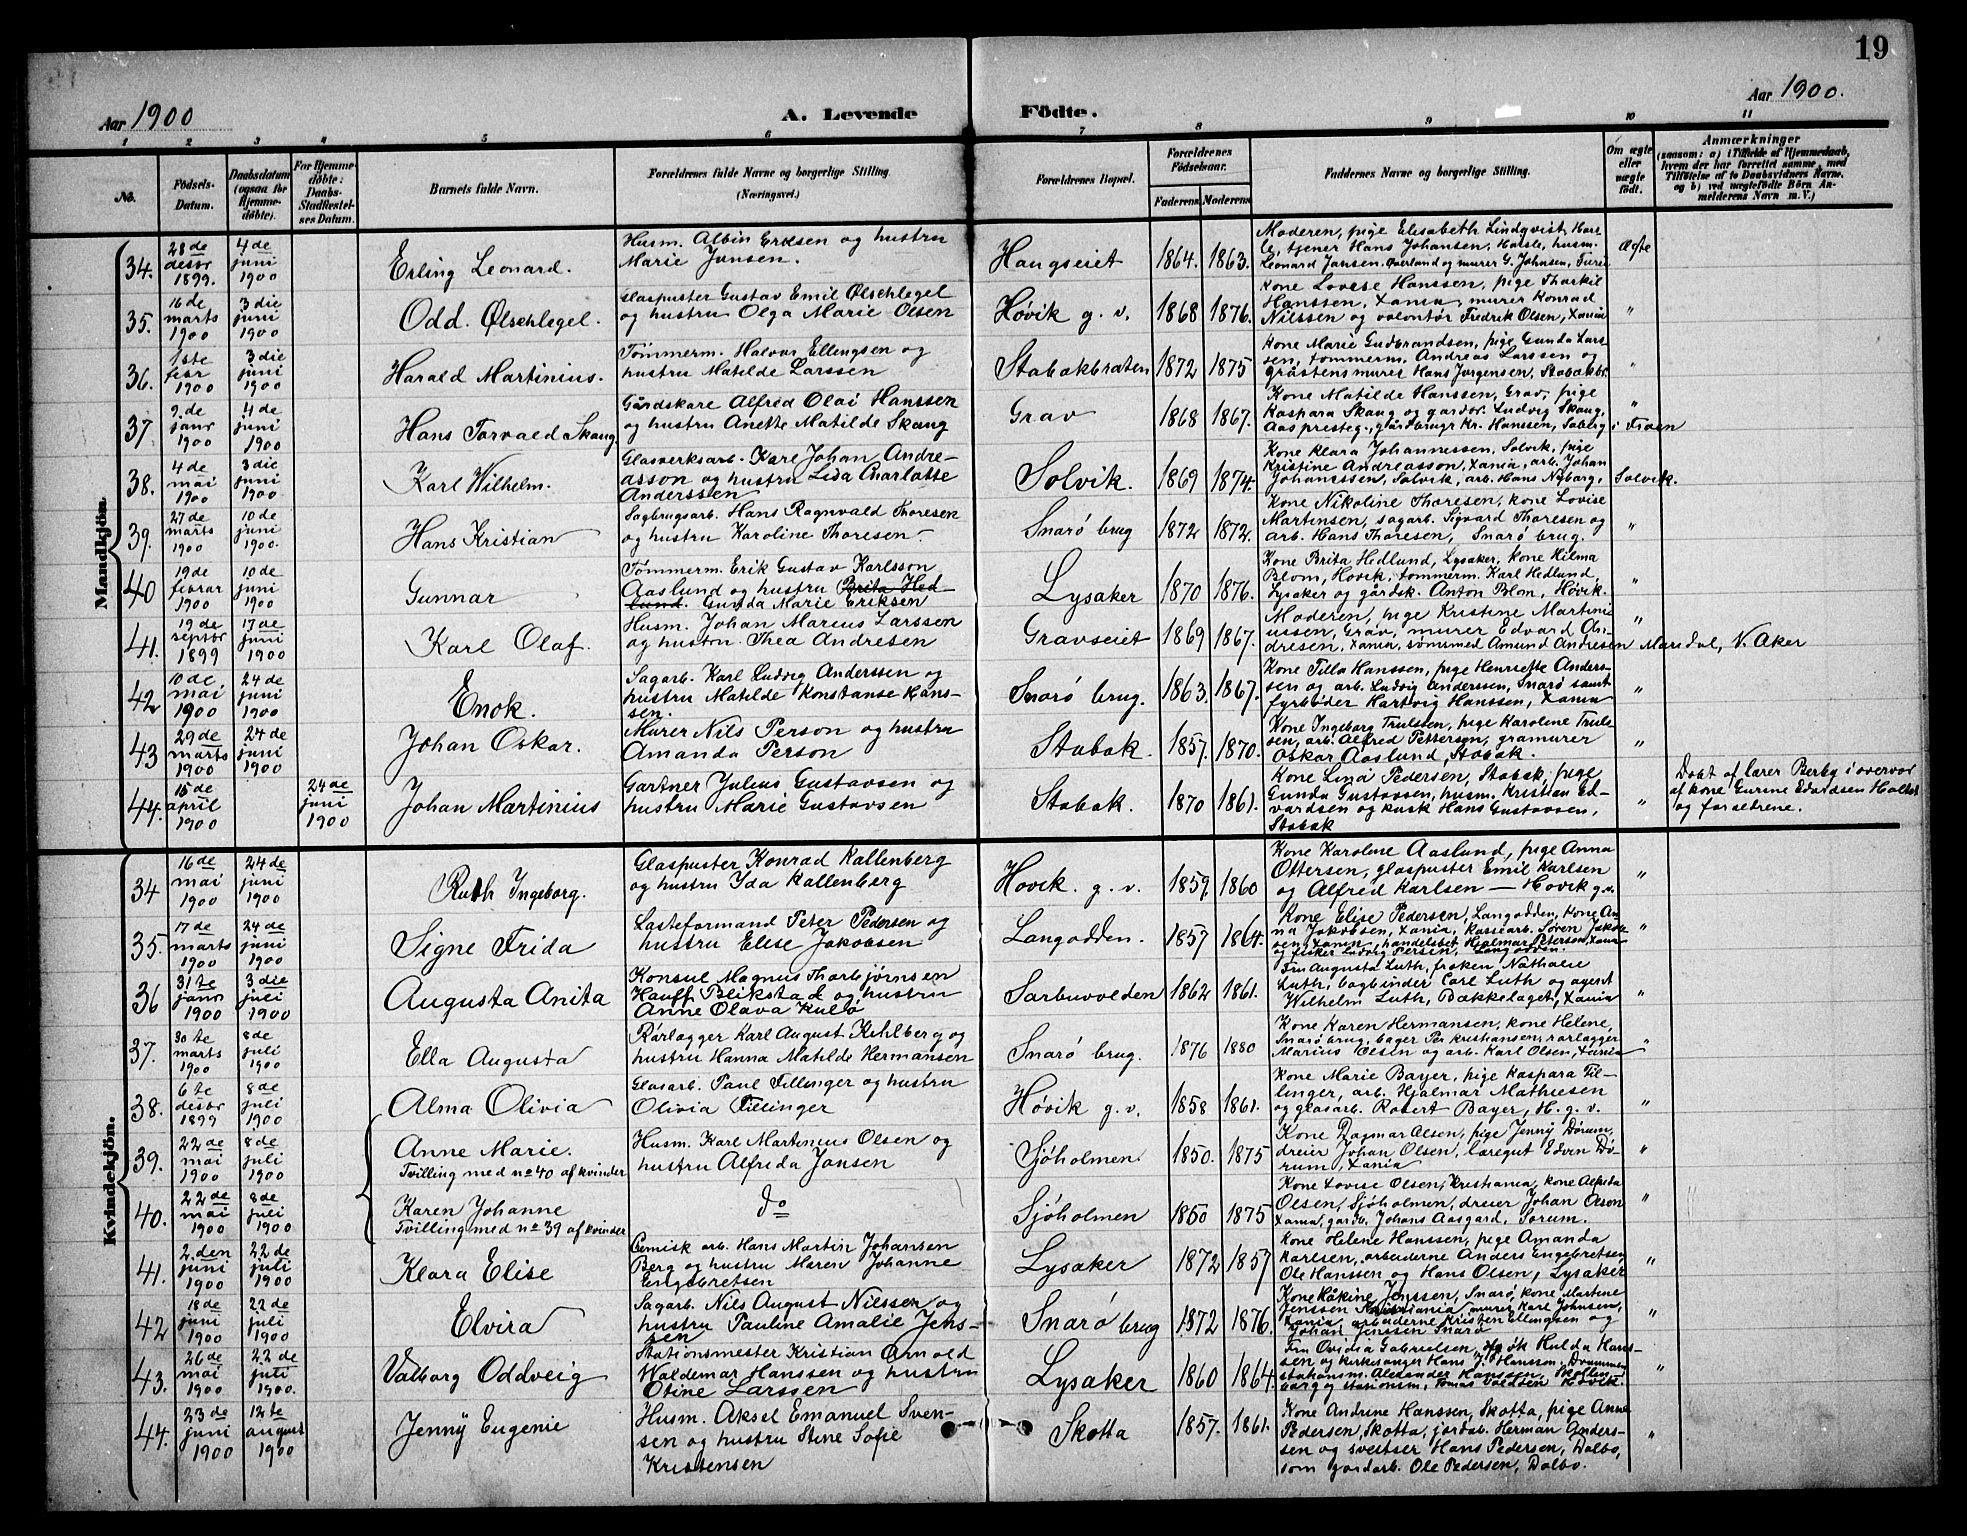 19
Aar 1900
A. Levende Födte.
Aar 1900.
1 2 3 4 5 6 7 8 9 10 11
No.
Födsels-
Datum.
Daabsdatum
(ogsaa for
Hjemme-
döbte).
For Hjemme-
döbte:
Daabs-
Stadfæstel-
ses Datum.
Barnets fulde Navn.
Forældrenes fulde Navne og borgerlige Stilling.
(Næringsvei.)
Forældrenes Bopæl.
Forældrenes
Födselsaar.
Faderens Moderens
Faddernes Navne og borgerlige Stilling.
Om ægte
eller
uægte
födt.
Anmærkninger
(saasom: a) i Tilfælde af Hjemmedaab,
hvem der har forrettet samme, med
Tilföielse af to Daabsvidners Navne,
og b) ved uægtefödte Börn An-
melderens Navn m. V.)
Mandkjön
34.
28de
desbr
1899.
4de
juni
1900
Erling Leonard.
Husm. Albin Eriksen og hustru
Marie Jansen.
Haugseiet
1864. 1863.
Moderen, pige Elisabeth Lindqvist, Hars-
le, tjener Hans Johansen, Harsle, husm.
Leonard Jansen. Øverland og murer G. Johnsen, Furu
Ægte
35.
16de
marts
1900
3die
juni
1900
Odd. Ølschlegel.
Glaspuster Gustav Emil Ølschlegel
og hustru Olga Marie Olsen
Høvik g. v.
1868 1876.
Kone Lovise Hanssen, pige Thorkil
Hanssen, Xania, murer Konrad
Nilssen og volontør Fredrik Olsen, Xania
"
36.
1ste
febr
1900
3die
juni
1900
Harald Martinius.
Tømmerm. Halvor Ellingsen og
hustru Matilde Larssen
Stabakbraten
1872 1875
Kone Marie Gudbrandsen, pige Gunda Lars-
sen, tømmerm. Andreas Larssen og
gråstensmurer Hans Jørgensen, Stabakbr.
"
37.
9.de
janr
1900
4de
juni
1900
Hans Torvald Skaug
Gårdskare Alfred Olai Hanssen
og hustru Anette Matilde Skaug
Grav
1868 1867.
Kone Matilde Hanssen, Grav, pige
Kaspara Skaug og gardbr. Ludvig Skaug,
Aas presteg., gårdbrugr Kr. Hanssen, Soberg i Troen
"
38.
4de
mai
1900
3die
juni
1900.
Karl Wilhelm.
Glasverksarb. Karl Johan Andre-
asson og hustru Lida Charlotte
Anderssen
Solvik.
1869 1874.
Kone Klara Johannessen, Solvik, pige
Kristine Andreasson, Xania, arb. Johan
Johanssen, Solvik, arb. Hans Nyborg, Solvik.
39.
27de
marts
1900
10de
juni
1900.
Hans Kristian
Sagbrugsarb. Hans Ragnvald Thoresen
og hustru Karoline Thoresen.
Snarø brug
1872 1872.
Kone Nikoline Thoresen, kone Lovise
Martinsen, sagarb. Sigvard Thoresen og
arb. Hans Thoresen, Snarø brug.
"
40
19de
febrar
1900
10de
juni
1900
Gunnar
Tømmerm. Erik Gustav Karlsson
Aaslund og hustru Brita Hed-
lund. Gunda Marie Eriksen
Lysaker
1870 1876.
Kone Brita Hedlund, Lysaker, kone Hilma
Blom, Høvik, tømmerm. Karl Hedlund,
Lysaker og gårdsk. Anton Blom, Høvik.
"
41.
19de
septbr
1899
17de
juni
1900
Karl Olaf.
Husm. Johan Marius Larssen
og hustru. Thea Andresen
Gravseiet
1869 1867.
Moderen, pige Kristine Martini-
ussen, Grav, murer Edvard An-
dresen, Xania, sømsmed Amund Andresen Maridal, V. Aker
"
42
10de
mai
1900
24de
juni
1900
Enok.
Sagarb. Karl Ludvig Anderssen og
hustru Matilde Konstanse Hans-
sen.
Snarø brug.
1863. 1867.
Kone Tilla Hanssen, pige Henriette Anders-
sen og arb. Ludvig Anderssen, Snarø samt
fyrbøder Hartvig Hanssen, Xania
"
43
29de
marts
1900
24de
juni
1900
Johan Oskar.
Murer Nils Person og hustru
Amanda Person
Stabak.
1857. 1870.
Kone Ingeborg Trulssen, pige Karolene Truls-
sen, arb. Alfred Pettersen, gramurer
Oskar Aaslund, Stabak.
"
44.
15de
april
1900
24de
juni
1900
Johan Martinius
Gartner Julius Gustavsen og
hustru Marie Gustavsen
Stabak.
1870 1861.
Kone Lina Pedersen, Stabak, pige
Gunda Gustavssen, husm. Kristian Ed-
vardsen og kusk Hans Gustavssen,
Stabak
"
Døbt af lærer Berby i overvær
af kone Gurine Edvardsen Holtet
og forældrene.
Kvindekjön.
34
16de
mai
1900
24de
juni
1900
Ruth Ingeborg.
Glaspuster Konrad Kallenberg
og hustru Ida Kallenberg
Høvik. g. v.
1859. 1860
Kone Karolene Aaslund, pige Anna
Ottersen, glaspuster Emil Karlsen
og Alfred Karlsen — Høvik g.v.
"
35.
17de
marts
1900
24de
juni
1900
Signe Frida
Lasteformand Peter Pedersen og
hustru Elise Jakobsen
Langodden.
1857 1864.
Kone Elise Pedersen, Langodden, kone An-
na Jakobsen, Xania, Kassearb. Søren Jakob-
sen, Xania, handelsbet Hjalmar Petersen, Xania
og fisker Ludvig Persen, Langodden.
"
36
31te
janr
1900
3die
juli
1900
Augusta Anita
Konsul Magnus Thorbjørnsen
Hauff Blikstad og hustru
Anne Olava Kullo
Sarbuvolden
1862 1861.
Fru Augusta Luth, frøken Nathalie
Luth, bogbinder Carl Luth og agent
Wilhelm Luth, Bækkelaget, Xania
"
37.
30te
marts
1900
8de
juli
1900
Ella Augusta
Rørlægger Karl August Kihlberg og
hustru Hanna Matilde Hermansen
Snarø brug.
1876 1880
Kone Karen Hermansen, kone Helene,
Snarø brug, bager Per Kristiansen, rørlægger
Marius Olsen og arb. Karl Olsen, Xania
"
38.
6te
desbr
1899
8de
juli
1900
Alma Olivia
Glasarb. Paul Fillinger og hustru
Olivia Fillinger
Høvik g. v.
1858 1861.
Kone Marie Bayer, pige Kaspara Fil-
linger, arb. Hjalmar Mathiesen
og glasarb. Robert Bayer, H. g. v.
"
39.
22de
mai
1900
8de
juli
1900
Anne Marie.
Tvilling med no 40 af kvinder
Husm. Karl Martinius Olsen og
hustru Alfrida Jansen
Sjøholmen
1850. 1875
Kone Dagmar Olsen, pige Jenny Dørum,
dreier Johan Olsen, læregut Edvin Dø-
rum, Xania
"
40.
22de
mai
1900
8de
juli
1900
Karen Johanne
Tvilling med no 39 af kvinder
do
Sjøholmen
1850 1875
Kone Lovise Olsen, Kristiania, kone Alfrida
Olsen, Sjøholmen, dreier Johan Olsen
Xania, gardb. Johans Aasgard, Sørum.
"
41.
2.den
juni
1900
22de
juli
1900
Klara Elise
Kemisk arb. Hans Martin Johansen
Berg og hustru Maren Johanne
Engebretsen
Lysaker
1872 1857
Kone Helene Hanssen, pige Amanda
Karlsen, arbeiderne Anders Engebretsen,
Ole Hanssen og Hans Olsen, Lysaker
"
42
18de
juni
1900
22de
juli
1900
Elvira
Sagarb. Nils August Nilssen og
hustru Pauline Amalie Jens-
sen
Snarø brug
1872 1876.
Kone Håkine Jenssen, Snarø, kone Martine
Jenssen Kristiania murer Karl Johnsen,
Xania, arbeiderne Kristen Ellingsen og
Johan Jenssen Snarø
"
43.
26de
mai
1900
22de
juli
1900.
Valborg Oddveig
Stationsmester Kristian Arnold
Waldemar Hanssen og hustru
Otine Larssen
Lysaker
1860 1864.
Fru Ovidia Gabrielsen, frøk Hulda Hans-
sen og kirkesanger Hans J. Hanssen, Drammen
stationsm. Alexander Hanssen,
og stationsm. Tomas Høvik.
"
44.
23de
juni
1900
12te
august
1900
Jenny Eugenie
Husm. Aksel Emanuel Sven-
sen og hustru Stine Sofie
Kristensen
Skotta
1857. 1861.
Kone Andrine Hanssen, Skotta, pige Anne
Pedersen, Skotta, jordab. Herman Anders-
sen og sveitser Hans Pedersen, Dalbo,
som gardarb. Ole Pedersen, Dalbo.
"